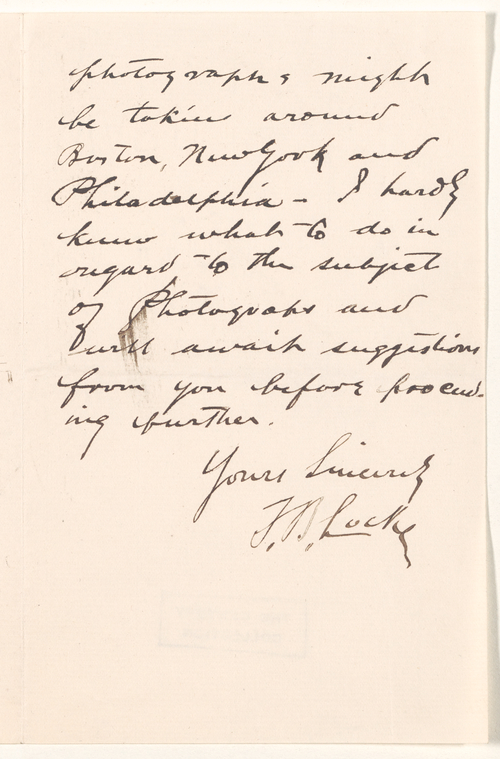 photographs might
be taken around
Boston, New York and
Philadelphia - I hardly
know what to do in
regard to the subject
of Photograps and
will await suggestions
from you before proceed-
ing further.
Yours Sincerely
F. B. Locke